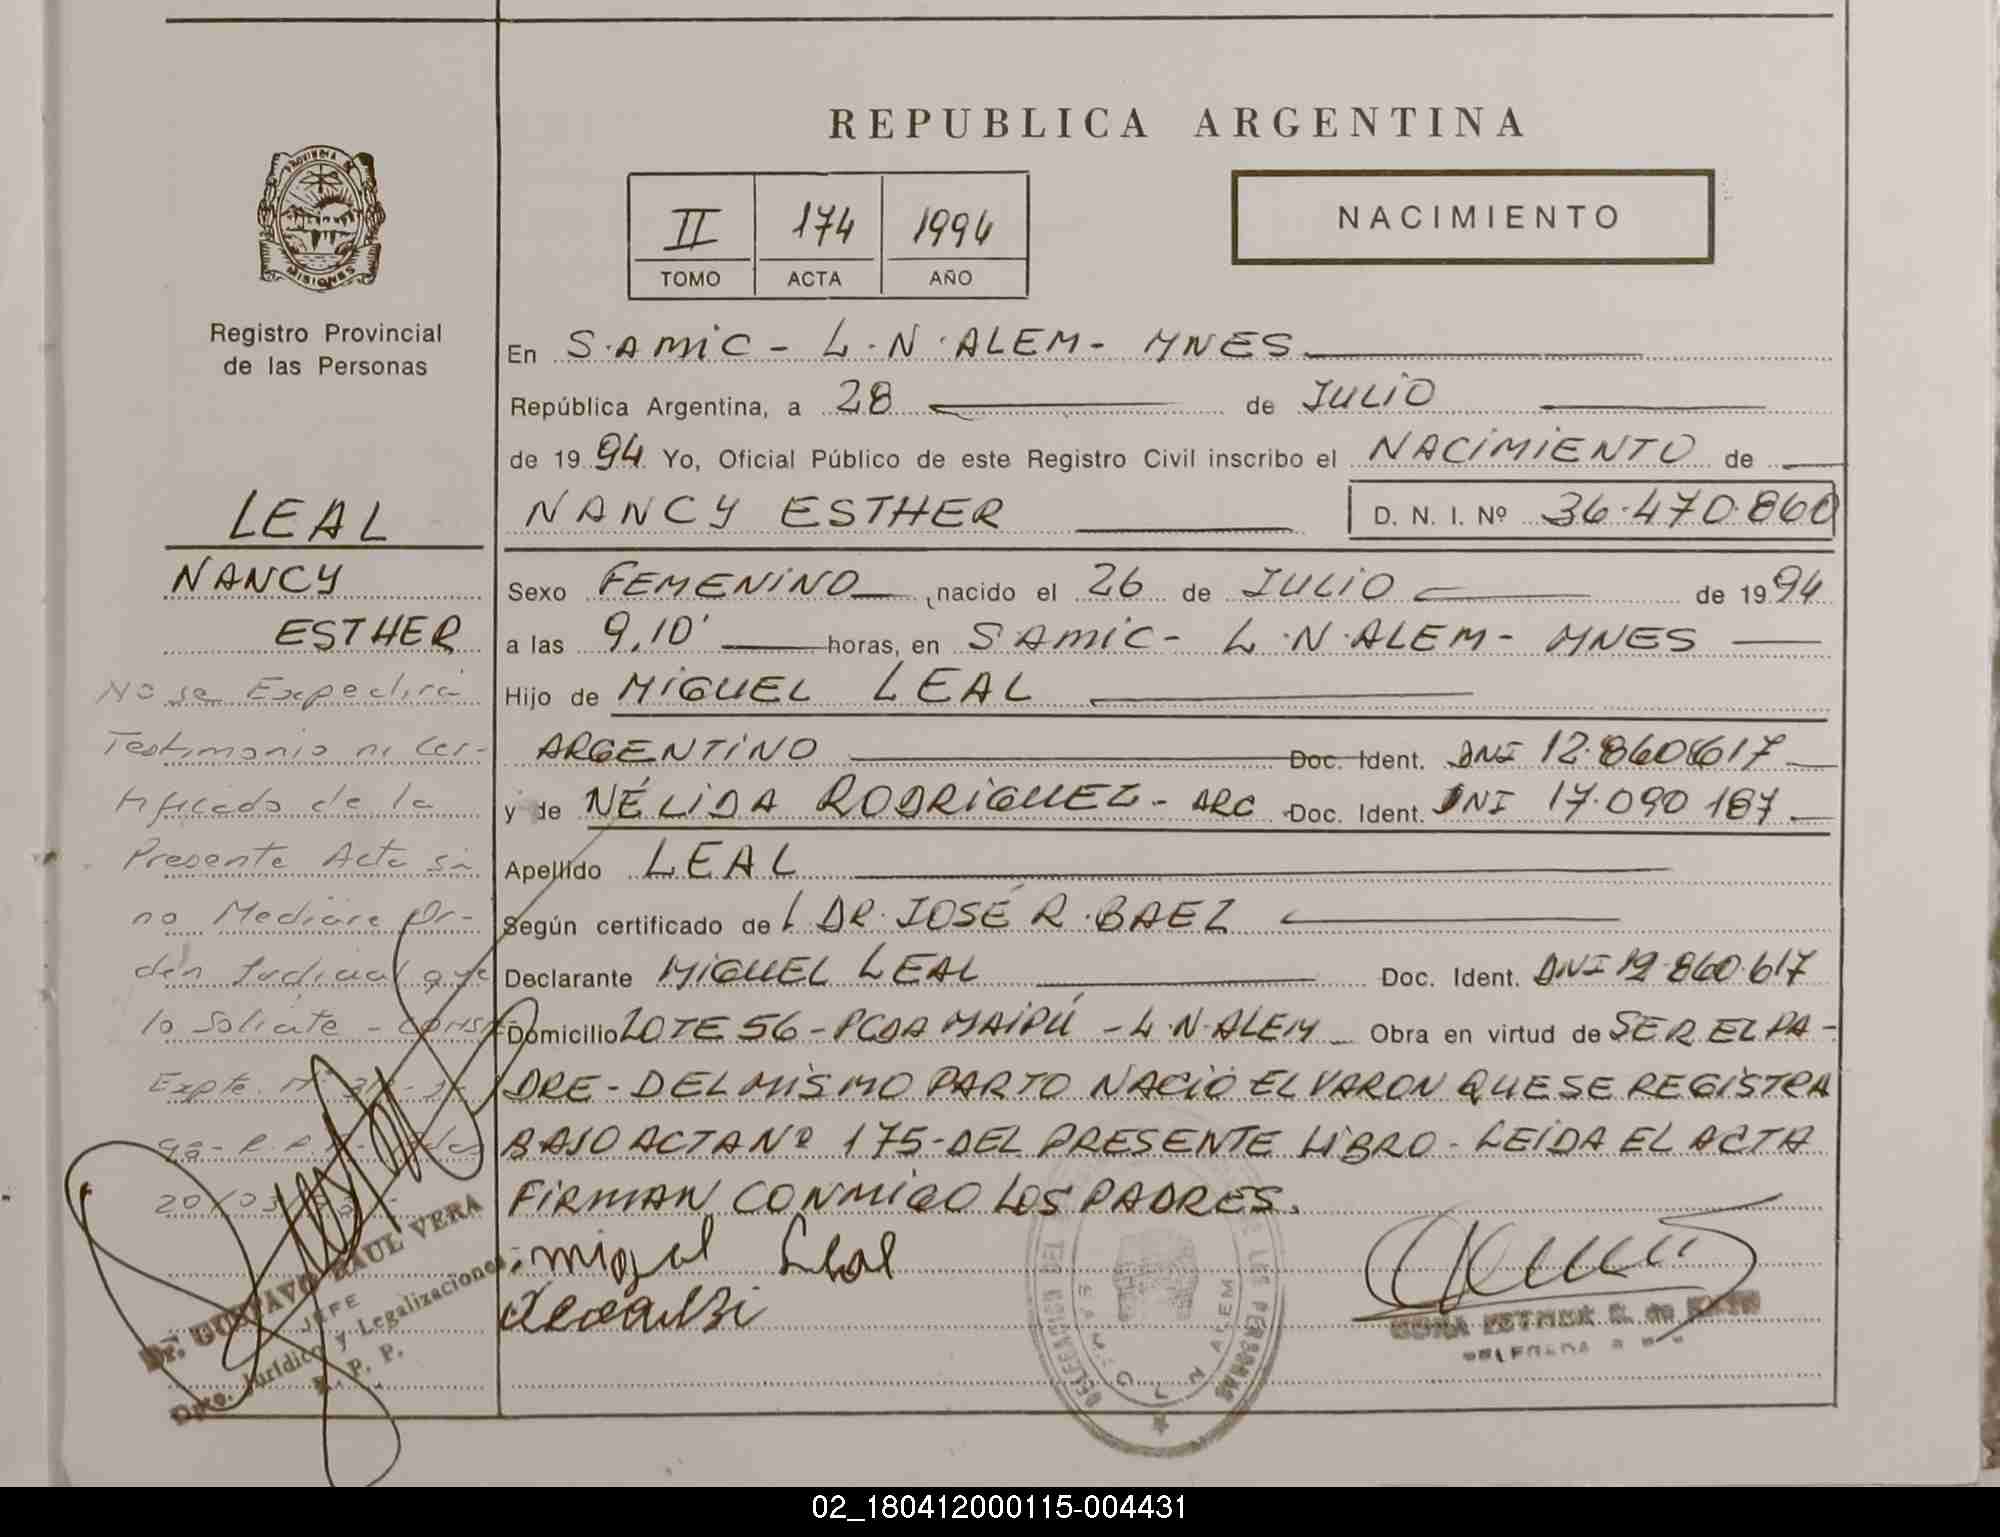 REPUBLICA ARGENTINA
PROVINCIA DE
MISIONES
Registro Provincial
de las Personas
II 174 1994
TOMO ACTA AÑO
NACIMIENTO
En S.AMIC - L.N.ALEM - MNES
República Argentina, a 28 de JULIO
de 1994 Yo, Oficial Público de este Registro Civil inscribo el NACIMIENTO de
NANCY ESTHER D. N. I. Nº 36.470.860
Sexo FEMENINO nacido el 26 de JULIO de 1994
a las 9,10' horas, en SAMIC - L.N.ALEM - MNES
Hijo de MIGUEL LEAL
ARGENTINO Doc. Ident. DNI 12.860617
y de NÉLIDA RODRIGUEZ - ARG Doc. Ident. DNI 17.090 187
Apellido LEAL
Según certificado de DR. JOSÉ R. BAEZ
Declarante MIGUEL LEAL Doc. Ident. DNI 12.860.617
Domicilio LOTE 56 - PCDA MAIPÚ - L.N.ALEM Obra en virtud de SER EL PA-
DRE - DEL MISMO PARTO NACIÓ EL VARON QUE SE REGISTRA
BAJO ACTA Nº 175 - DEL PRESENTE LIBRO - LEIDA EL ACTA
FIRMAN CONMIGO LOS PADRES.
Miguel Leal
DELEGADA
L N ALEM
LEAL
NANCY
ESTHER
No se Expedirá
Testimonio ni Cer-
tificado de la
Presente Acta si
no Mediare Or-
den Judicial que
lo Solicite -
Expte. Nº
20/03
Dr. GUSTAVO RAUL VERA
JEFE
Dpto. Jurídico y Legalizaciones
R. P. P.
02_180412000115-004431